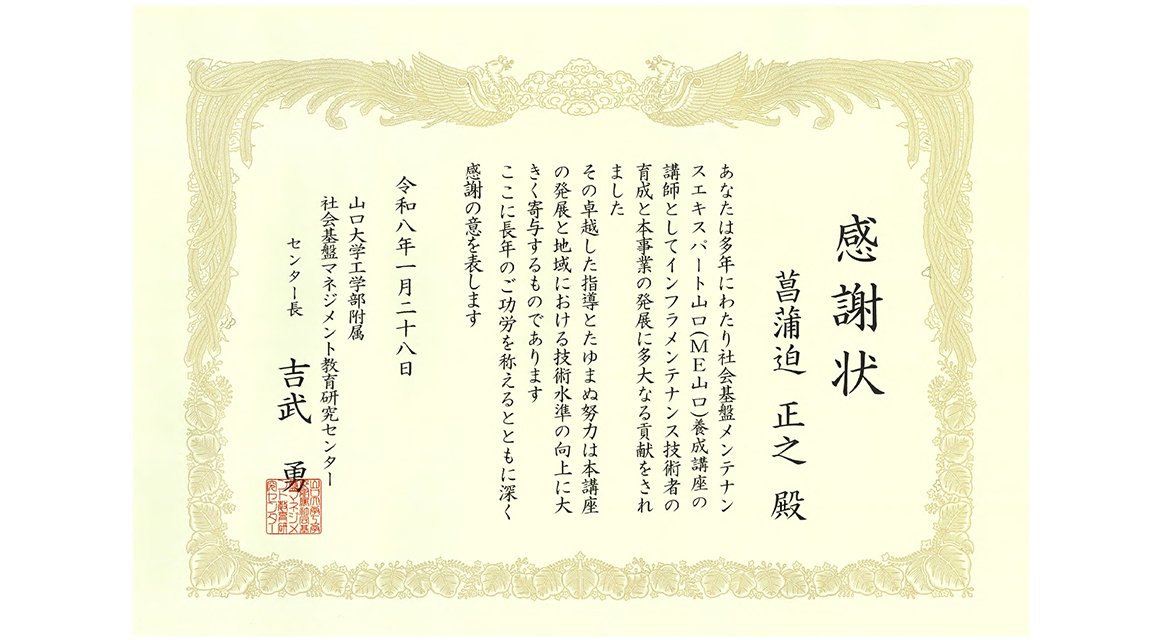 感謝状
菖蒲迫 正之 殿
あなたは多年にわたり社会基盤メンテナン
スエキスパート山口(ME山口)養成講座の
講師としてインフラメンテナンス技術者の
育成と本事業の発展に多大なる貢献をされ
ました
その卓越した指導とたゆまぬ努力は本講座
の発展と地域における技術水準の向上に大
きく寄与するものであります
ここに長年のご功労を称えるとともに深く
感謝の意を表します
令和八年一月二十八日
山口大学工学部附属
社会基盤マネジメント教育研究センター
センター長 吉武 勇